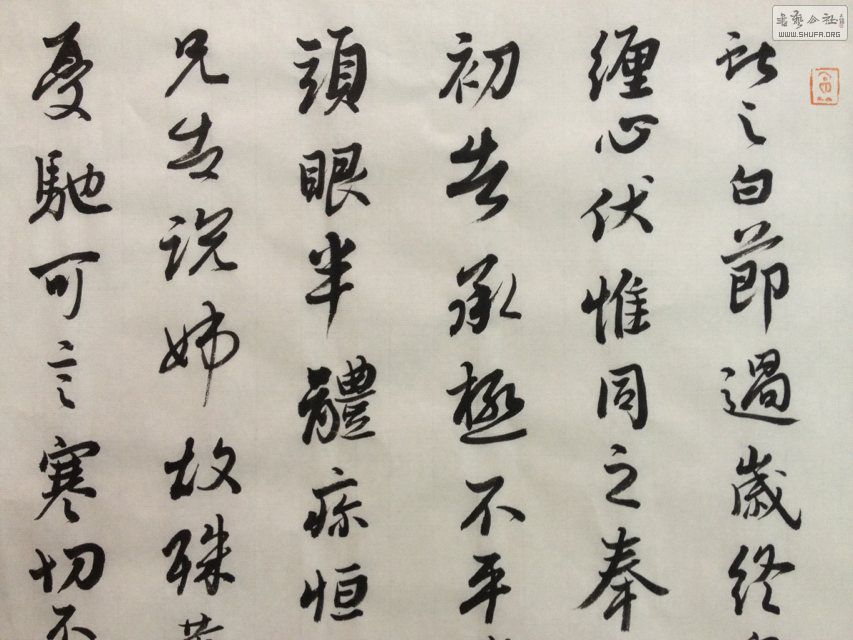 書藝公社
WWW.SHUFA.ORG
獻之白節過歲終
纏心伏惟同之奉
初告承極不平
頭眼半體疼恒
兄告說姊故殊黃
憂馳可言寒切不